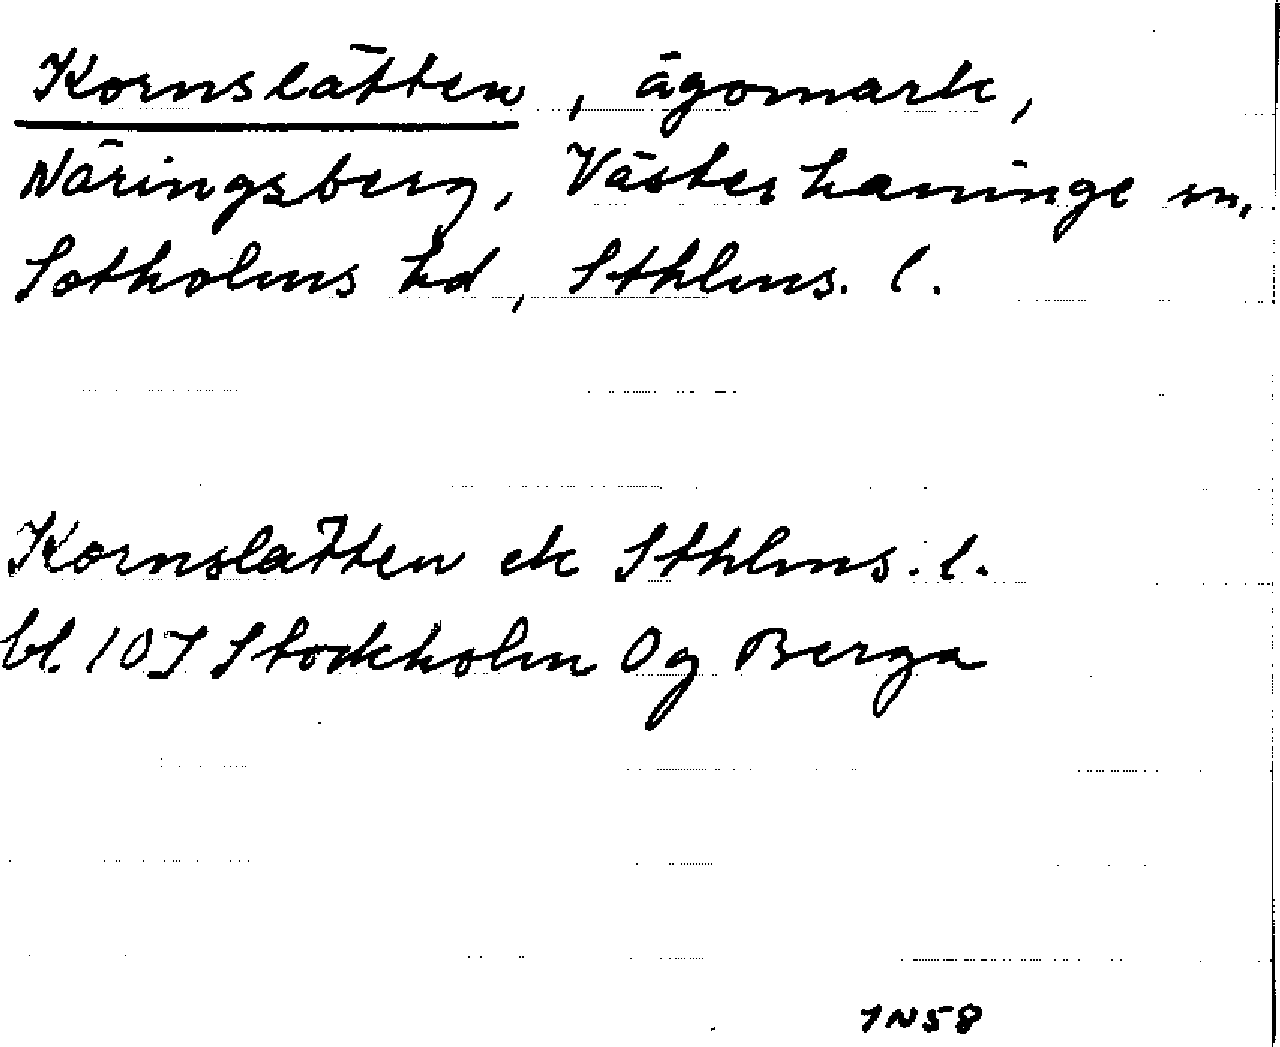 Kornslätten, ägomark,
Näringsberg, Västerhaninge sn,
Sotholms hd, Sthlms. l.
Kornslätten ek Sthlms. l.
bl. 10I Stockholm Og Berga
IN58